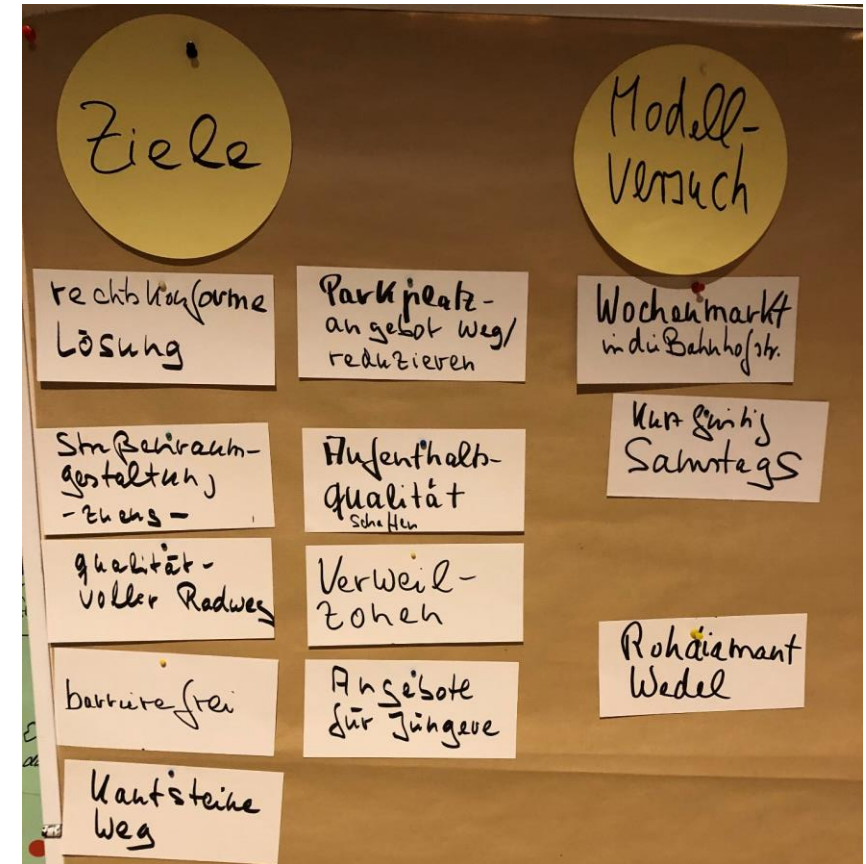 Ziele
rechtskonforme
Lösung
Straßenraum-
gestaltung
- zu eng -
qualität-
voller Radweg
barrierefrei
Kantsteine
Weg
Parkplatz-
angebot weg/
reduzieren
Aufenthalts-
qualität
schaffen
Verweil-
zonen
Angebote
für Jüngere
Modell-
versuch
Wochenmarkt
in die Bahnhofstr.
Kurzfristig
Samstags
Rohdiamant
Wedel